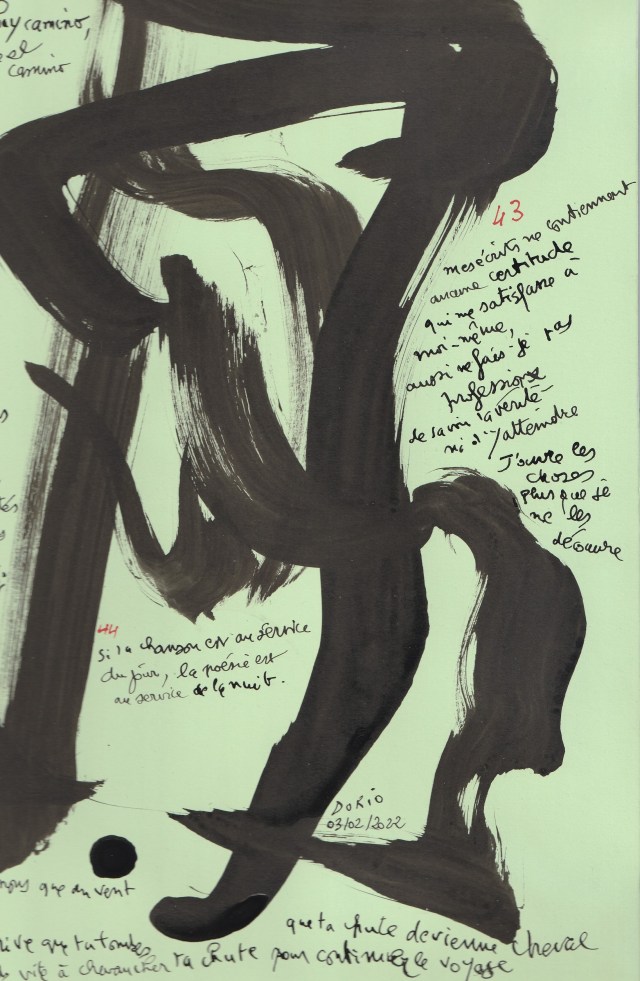 camino,
el
camino
43
mes écrits ne contiennent
aucune certitude
qui me satisfasse à
moi-même,
aussi ne fais-je pas
profession
de savoir la vérité
ni d'y atteindre
J'ouvre les
choses
plus que je
ne les
découvre
44
si la chanson est au service
du jour, la poésie est
au service de la nuit.
DORIO
03/02/2022
que du vent
que ta chute devienne cheval
que tu tombes
vite à chevaucher ta chute pour continuer le voyage